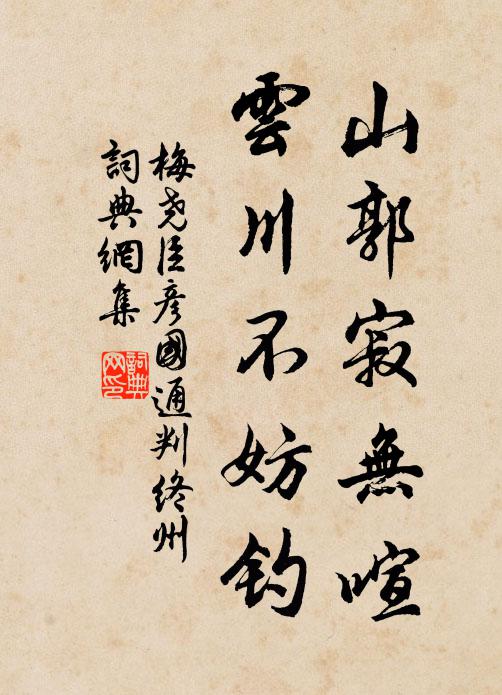 山郭寂無喧
雲川不妨釣
梅堯臣彥國通判絳州
詞典網集
詞典網印